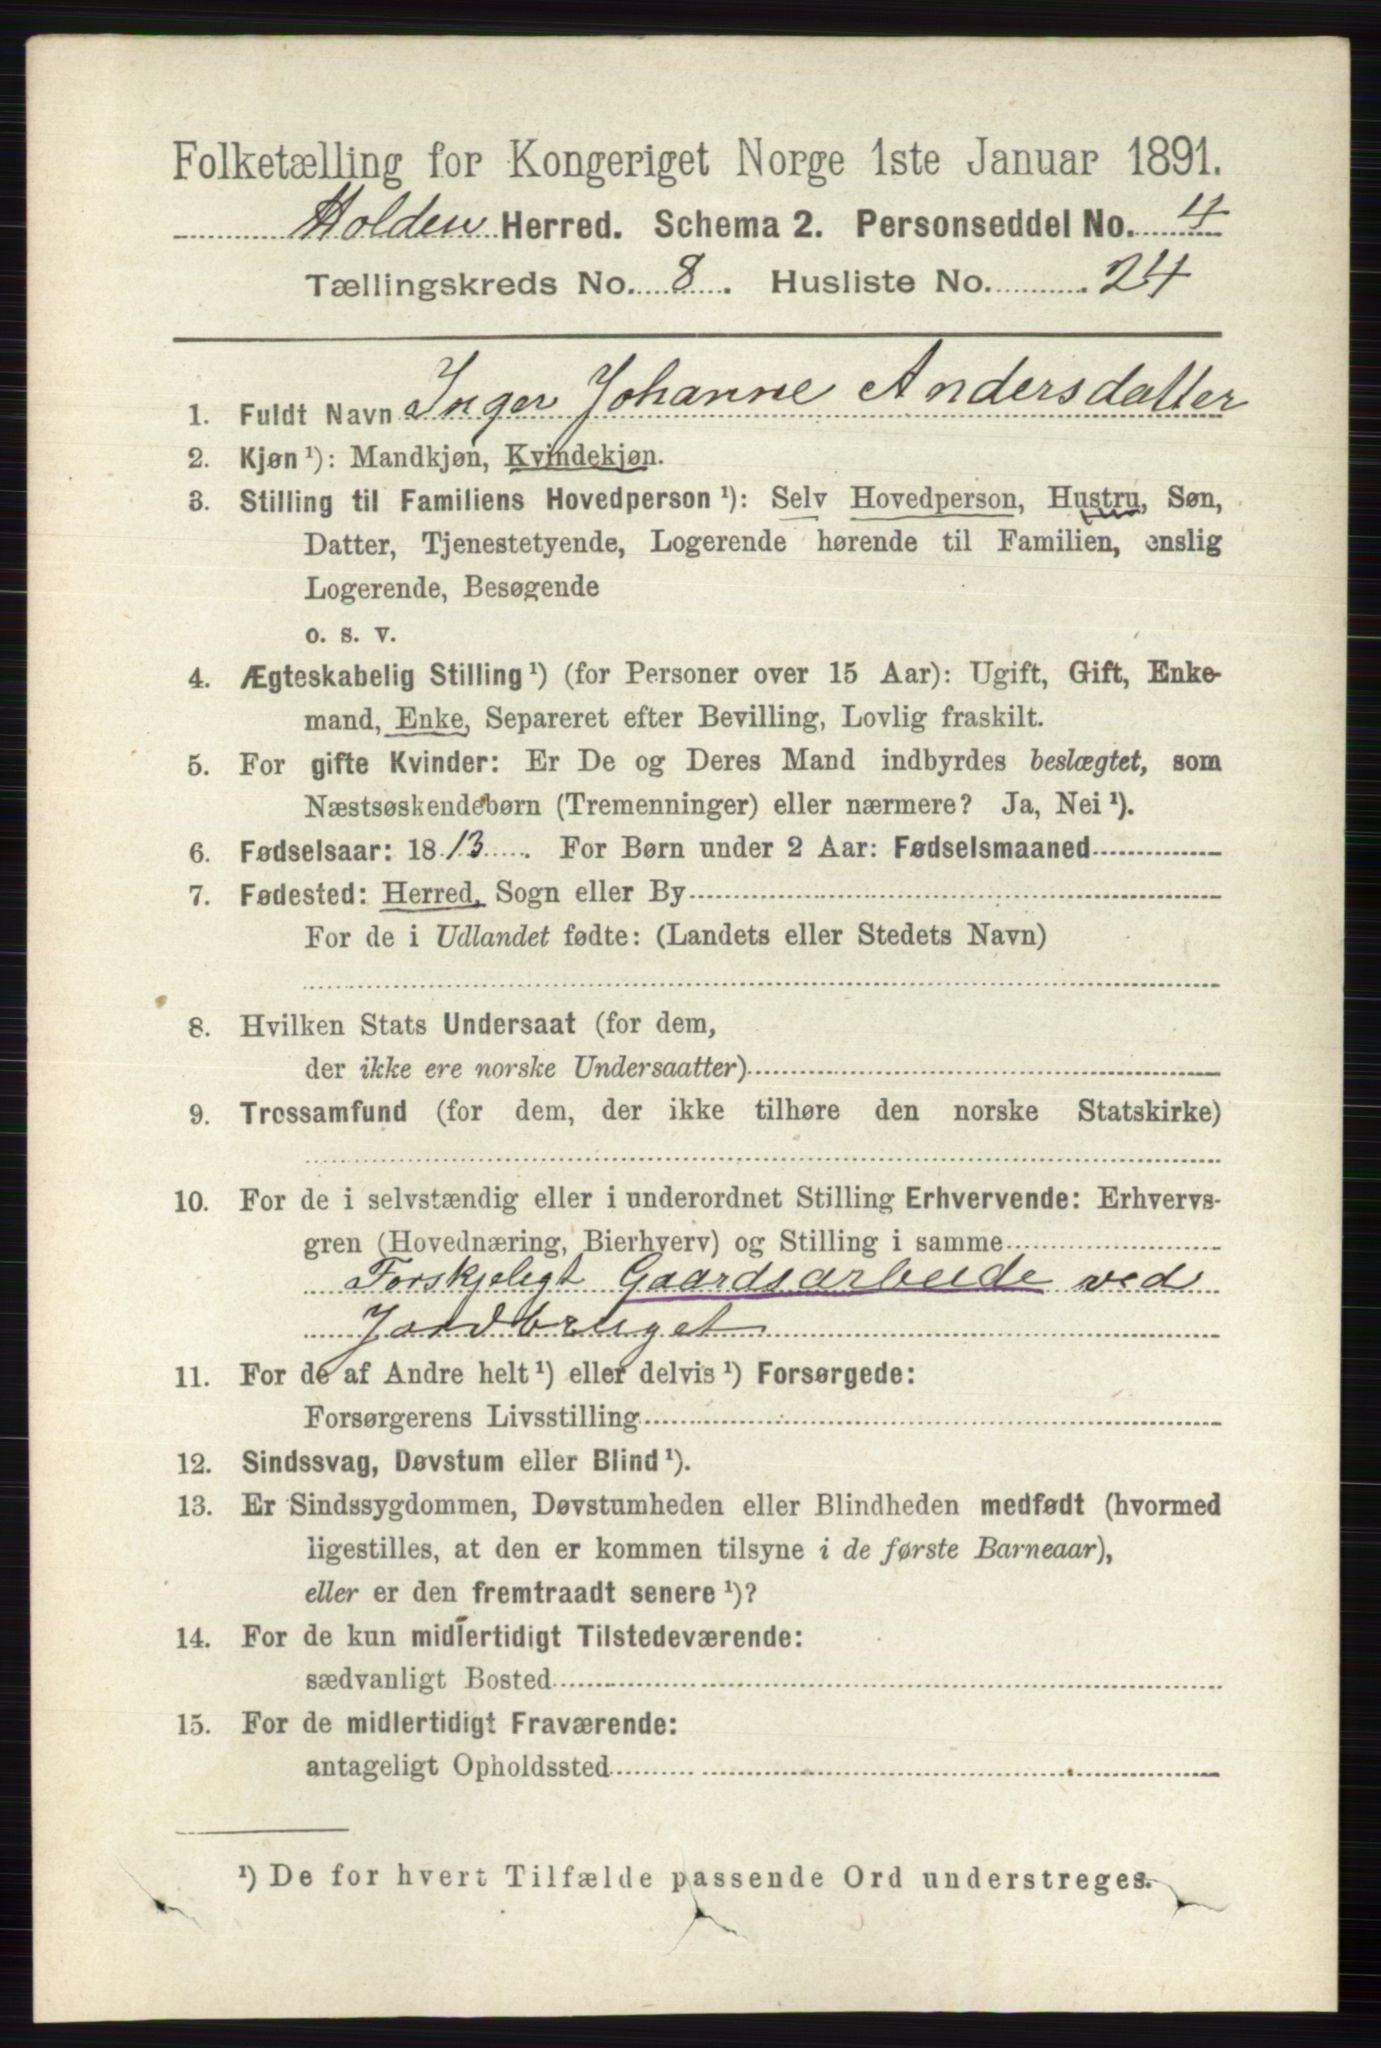 Folketælling for Kongeriget Norge 1ste Januar 1891.
Holden Herred. Schema 2. Personseddel No. 4
Tællingskreds No. 8. Husliste No. 24
1. Fuldt Navn Inger Johanne Andersdatter
2. Kjøn ¹): Mandkjøn, Kvindekjøn.
3. Stilling til Familiens Hovedperson ¹): Selv Hovedperson, Hustru, Søn,
Datter, Tjenestetyende, Logerende hørende til Familien, enslig
Logerende, Besøgende
o. s. v.
4. Ægteskabelig Stilling ¹) (for Personer over 15 Aar): Ugift, Gift, Enke-
mand, Enke, Separeret efter Bevilling, Lovlig fraskilt.
5. For gifte Kvinder: Er De og Deres Mand indbyrdes beslægtet, som
Næstsøskendebørn (Tremenninger) eller nærmere? Ja, Nei ¹).
6. Fødselsaar: 1813. For Børn under 2 Aar: Fødselsmaaned
7. Fødested: Herred, Sogn eller By
For de i Udlandet fødte: (Landets eller Stedets Navn)
8. Hvilken Stats Undersaat (for dem,
der ikke ere norske Undersaatter)
9. Trossamfund (for dem, der ikke tilhøre den norske Statskirke)
10. For de i selvstændig eller i underordnet Stilling Erhvervende: Erhvervs-
gren (Hovednæring, Bierhverv) og Stilling i samme
Forskjeligt Gaardsarbeide ved
Jordbruget
11. For de af Andre helt ¹) eller delvis ¹) Forsørgede:
Forsørgerens Livsstilling
12. Sindssvag, Døvstum eller Blind ¹).
13. Er Sindssygdommen, Døvstumheden eller Blindheden medfødt (hvormed
ligestilles, at den er kommen tilsyne i de første Barneaar),
eller er den fremtraadt senere ¹)?
14. For de kun midlertidigt Tilstedeværende:
sædvanligt Bosted
15. For de midlertidigt Fraværende:
antageligt Opholdssted
¹) De for hvert Tilfælde passende Ord understreges.